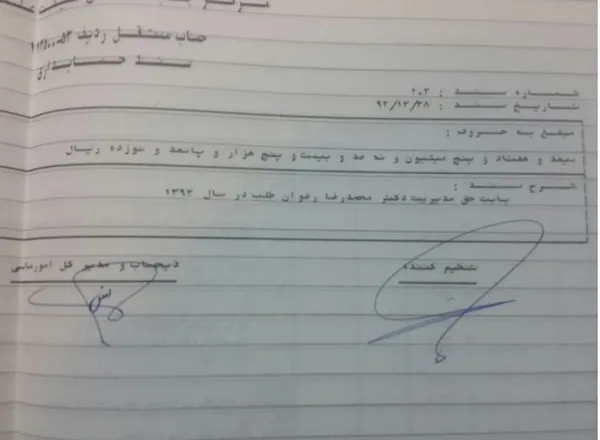 حساب مستقل ردیف
سند حسابداری
شماره سند : ۱۰۳
تاریخ سند : ۹۲/۱۲/۲۸
مبلغ به حروف :
سیصد و هفتاد و پنج میلیون و نه صد و بیست و پنج هزار و پانصد و نوزده ریال
شرح سند :
بابت حق مدیریت دکتر محمدرضا رضوان طلب در سال ۱۳۹۲
تنظیم کننده
ذیحساب و مدیر کل امورمالی